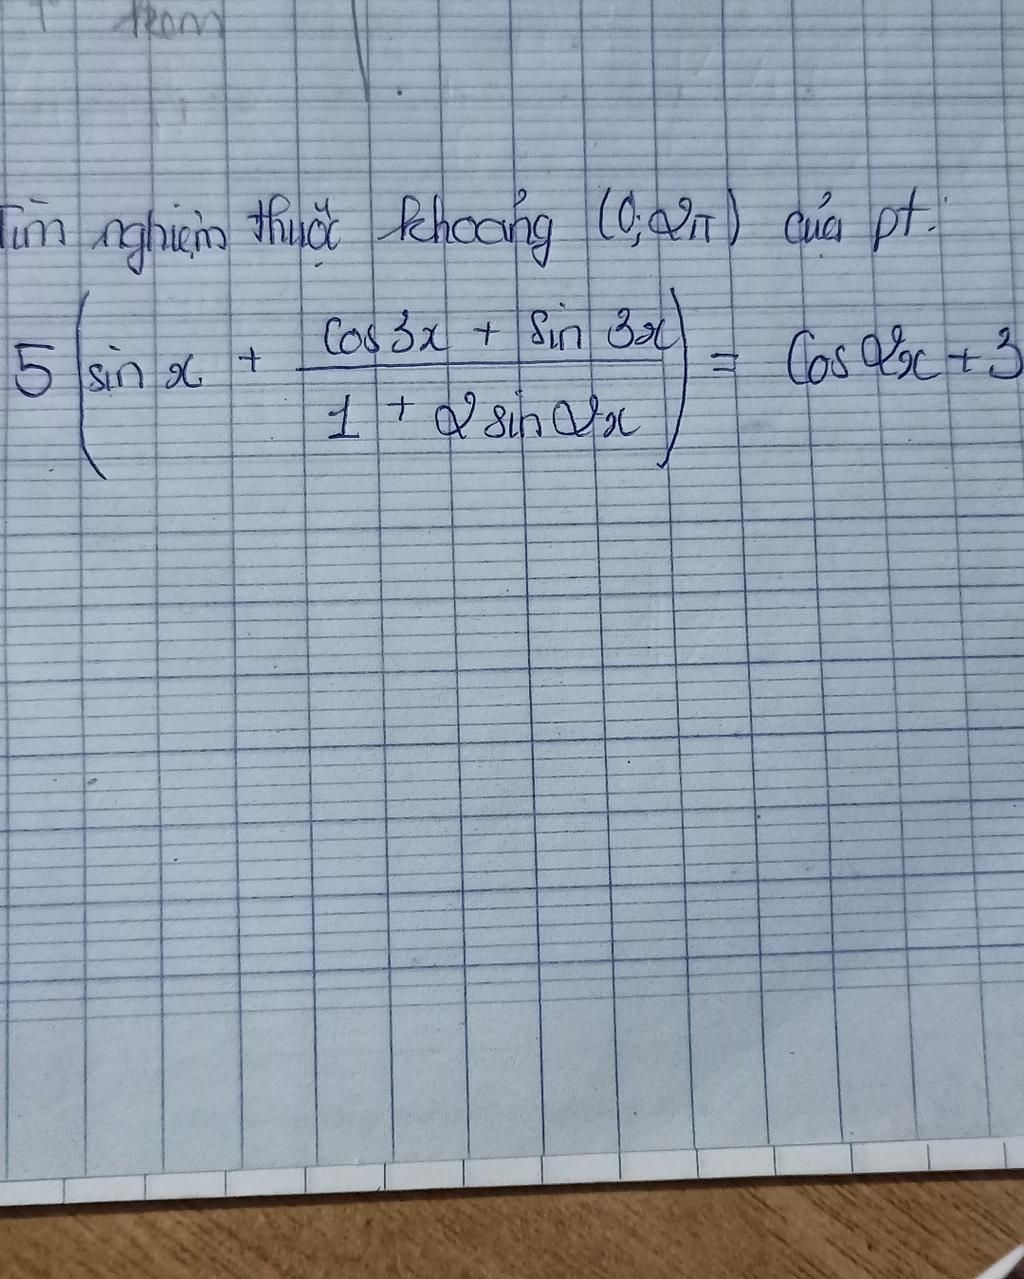 Tìm nghiệm thuộc khoảng (0; 2π) của pt:
5 (sin x + (cos 3x + sin 3x) / (1 + 2 sin 2x)) = Cos 2x + 3